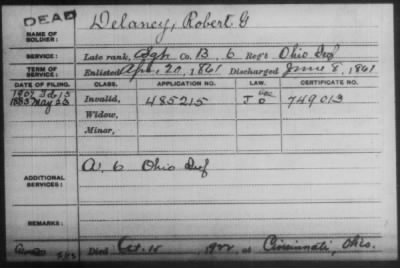 DEAD
NAME OF SOLDIER: Delaney, Robert G
SERVICE: Late rank, Sgt Co. B, 6 Reg't Ohio Inf
TERM OF SERVICE: Enlisted Apr. 20, 1861 Discharged June 8, 1861
DATE OF FILING. CLASS. APPLICATION NO. LAW. CERTIFICATE NO.
1907 Feb 15
1883 May 23 Invalid, 485215 J 749013
Widow,
Minor,
ADDITIONAL SERVICES: A. 6 Ohio Inf
REMARKS:
Died Oct. 15 at Cincinnati, Ohio.